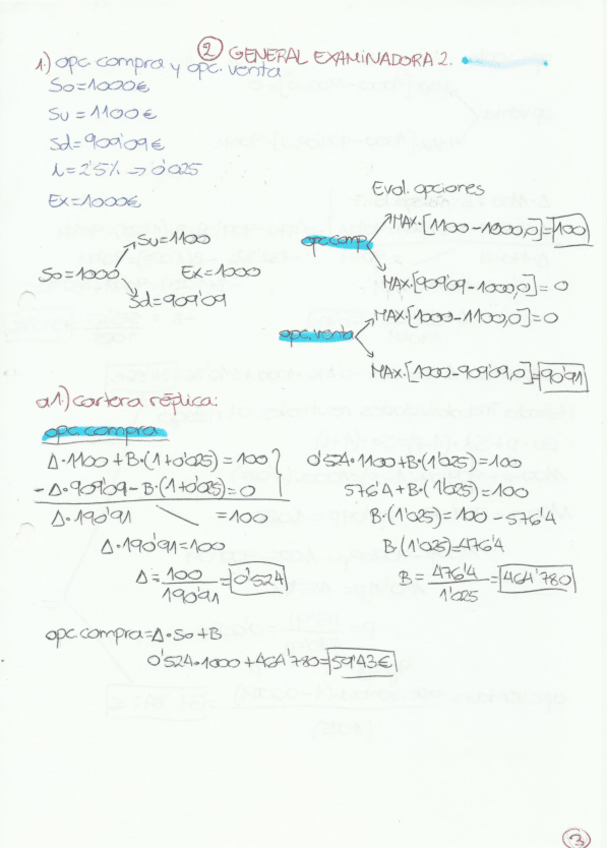 ② GENERAL EXAMINADORA 2.
1.) opc. compra y opc. venta
So=1000€
Su=1100€
Sd=909'09€
i=2'5% → 0'025
Ex=1000€
Eval. opciones
opc. comp.
MAX.[1100-1000,0]=100
MAX.[909'09-1000,0]=0
So=1000
Su=1100
Sd=909'09
Ex=1000
opc. venta
MAX.[1000-1100,0]=0
MAX.[1000-909'09,0]=90'91
a1.) cartera réplica:
opc. compra
Δ·1100+B·(1+0'025)=100
-Δ·909'09-B·(1+0'025)=0
Δ·190'91 =100
Δ·190'91=100
Δ=100/190'91=0'524
0'524·1100+B·(1'025)=100
576'4+B·(1'025)=100
B·(1'025)=100-576'4
B(1'025)=476'4
B=476'4/1'025=464'780
opc. compra=Δ·So+B
0'524·1000+464'780=59'43€
3